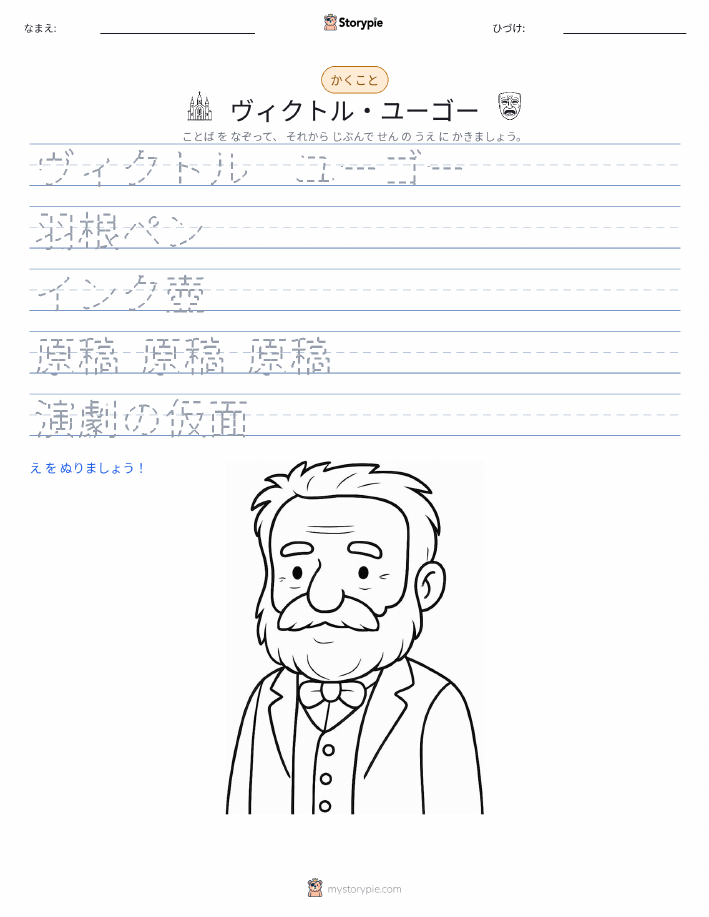 なまえ:
Storypie
ひづけ:
かくこと
ヴィクトル・ユーゴー
ことば を なぞって、 それから じぶんで せん の うえ に かきましょう。
ヴィクトル ユーゴー
羽根ペン
インク壺
原稿 原稿 原稿
演劇の仮面
え を ぬりましょう!
mystorypie.com